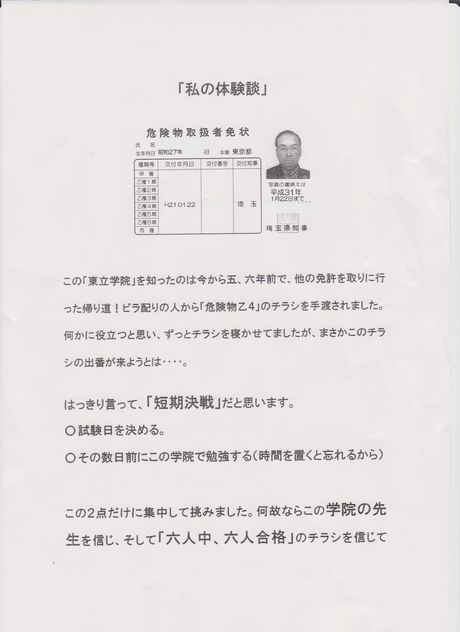 「私の体験談」
危険物取扱者免状
氏 名
生年月日 昭和27年 日 本籍 東京都
種類等 交付年月日 交付番号 交付知事
甲 種
乙種1類
乙種2類
乙種3類
乙種4類 H21.01.22 埼 玉
乙種5類
乙種6類
丙 種
写真の書換えは
平成31年
1月22日まで
埼玉県知事
この「東立学院」を知ったのは今から五、六年前で、他の免許を取りに行
った帰り道！ビラ配りの人から「危険物乙4」のチラシを手渡されました。
何かに役立つと思い、ずっとチラシを寝かせてましたが、まさかこのチラ
シの出番が来ようとは・・・・。
はっきり言って、「短期決戦」だと思います。
○試験日を決める。
○その数日前にこの学院で勉強する（時間を置くと忘れるから）
この２点だけに集中して挑みました。何故ならこの学院の先
生を信じ、そして「六人中、六人合格」のチラシを信じて